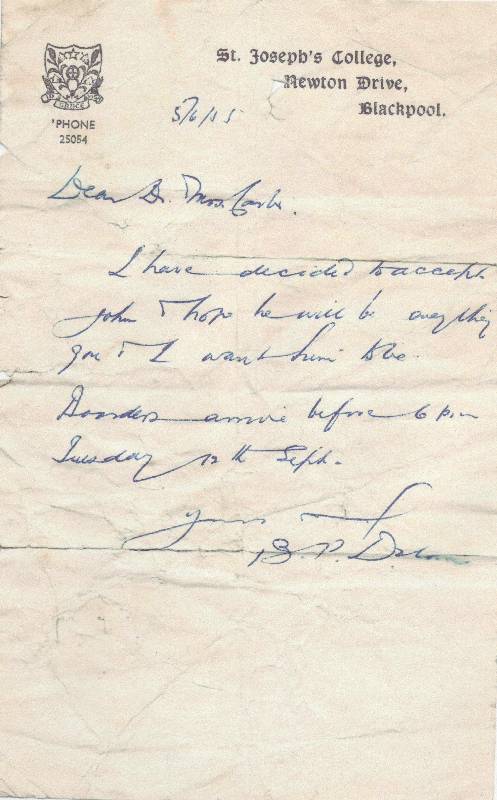 St. Joseph's College,
Newton Drive,
Blackpool.
'PHONE
25054
5/6/55
Dear Dr. Mrs.
I have decided to accept
John & I hope he will be everything
you & I want him to be.
Boarders arrive before 6 p.m
Tuesday 12th Sept.
Yours
B. P.